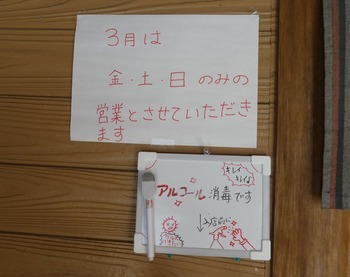 3月は
金・土・日のみの
営業とさせていただき
ます
キレイ
キレイ
アルコール消毒です
入店前に